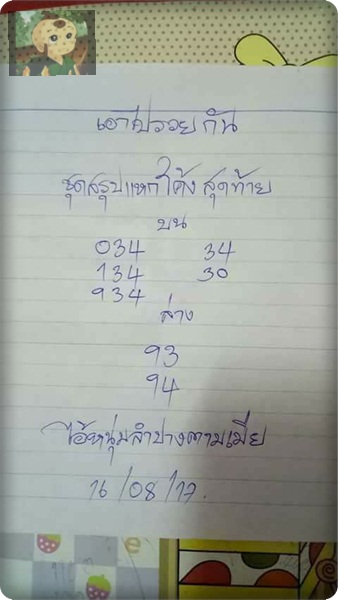 เอาไปรวยกัน
ชุดสรุปแหกโค้งสุดท้าย
บน
034 34
134 30
934
ล่าง
93
94
ไอ้หนุ่มลำปางตามเมีย
16/08/17.